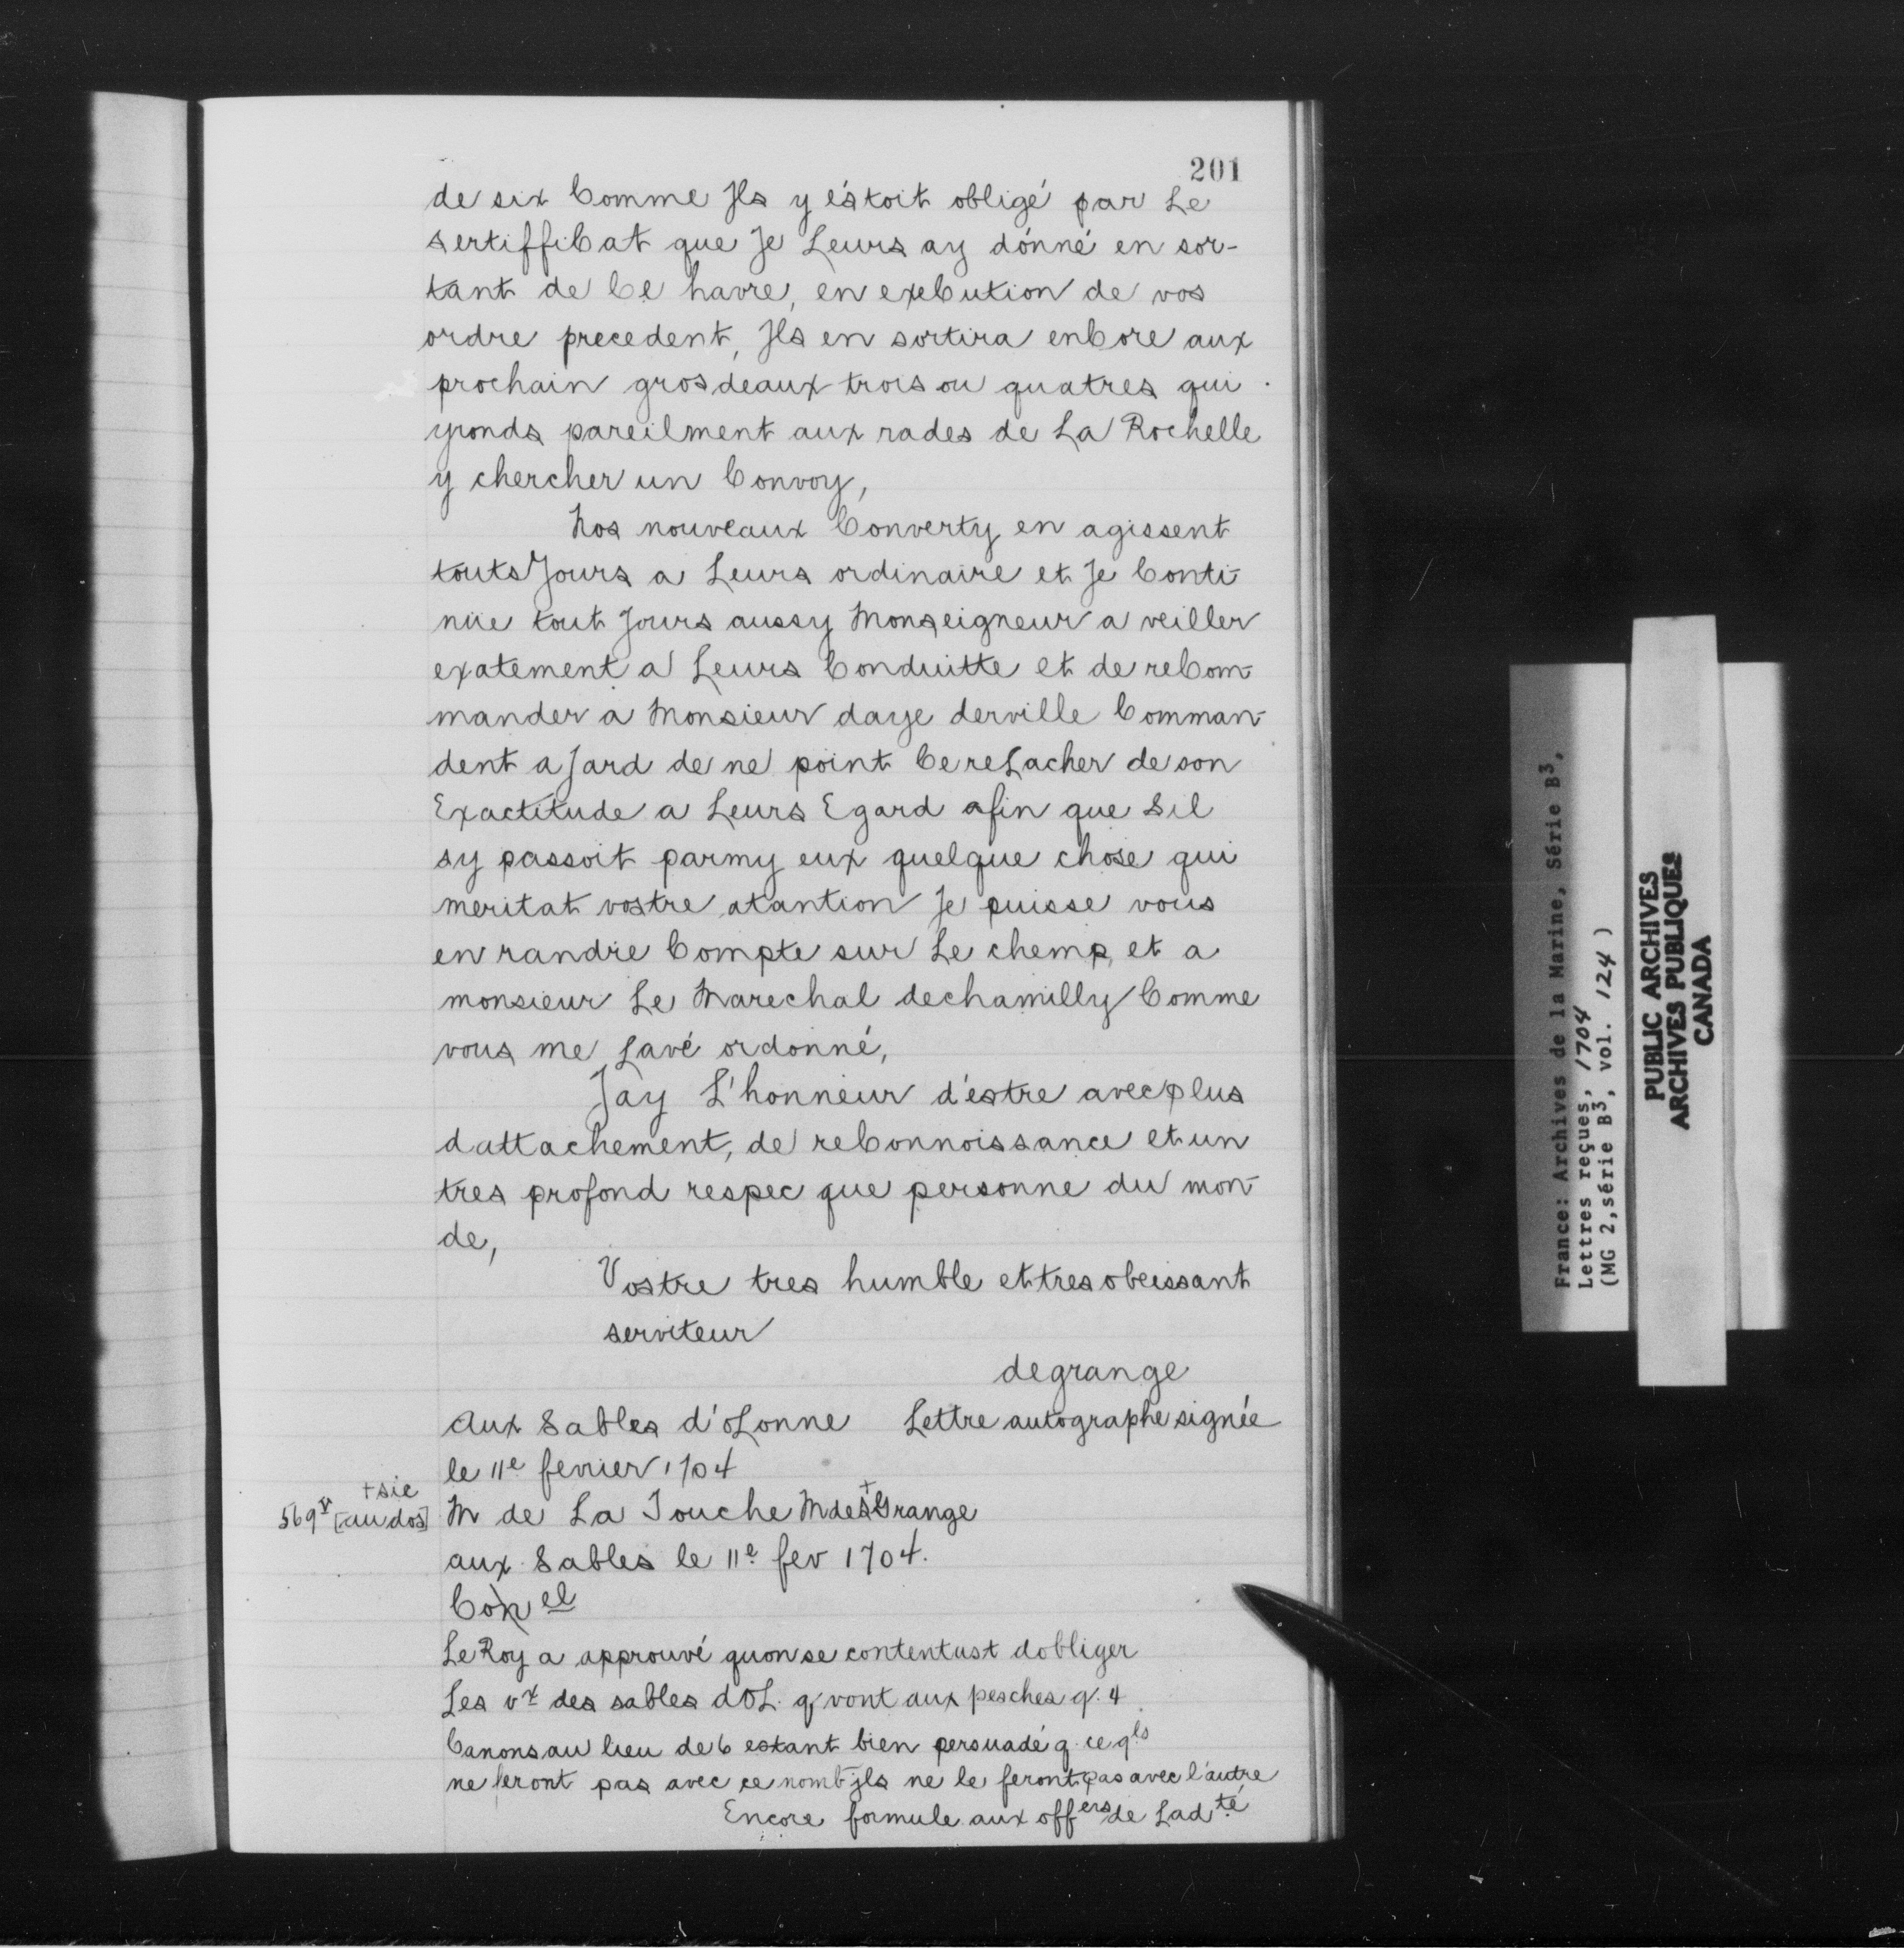 201
de six Comme Jls y éstoit obligé par Le
sertiffiCat que Je Leurs ay dónné en sor-
tant de Ce havre, en exeCution de vos
ordre precedent, Jls en sortira enCore aux
prochain grosdeaux trois ou quatres qui
yronds pareilment aux rades de La Rochelle
y chercher un Convoy,
Nos nouveaux Converty en agissent
touts Jours a Leurs ordinaire et Je Conti-
nüe tout Jours aussy Monseigneur a veiller
exatement a Leurs Conduitte et de reCom-
mander a Monsieur daye derville Comman-
dent a Jard de ne point Ce reLacher de son
Exactitude a Leurs Egard afin que Sil
sy passoit parmy eux quelque chose qui
meritat vostre atantion Je puisse vous
en randre Compte sur Le chemp, et a
monsieur Le Marechal dechamilly Comme
vous me Lavé ordonné,
Jay L'honneur d'éstre avec plus
dattachement, de reConnoissance et un
tres profond respec que personne du mon-
de,
Vostre tres humble et tres obeissant
serviteur
degrange
Aux Sables d'oLonne Lettre autographe signée
le 11e fevrier 1704
+sic
569v [au dos] M de La Touche M des+Grange
aux Sables le 11e fev 1704.
Conel
Le Roy a approuvé quon se contentast dobliger
Les vx des sables dOL. q vont aux pesches q. 4
Canons au lieu de 6 estant bien persuadé q. ce qls
ne feront pas avec ce nomb jls ne le feront pas avec l'autre
Encore formule aux offers de Ladte
France: Archives de la Marine, Série B3,
Lettres reçues, 1704
(MG 2, série B3, vol. 124)
PUBLIC ARCHIVES
ARCHIVES PUBLIQUES
CANADA